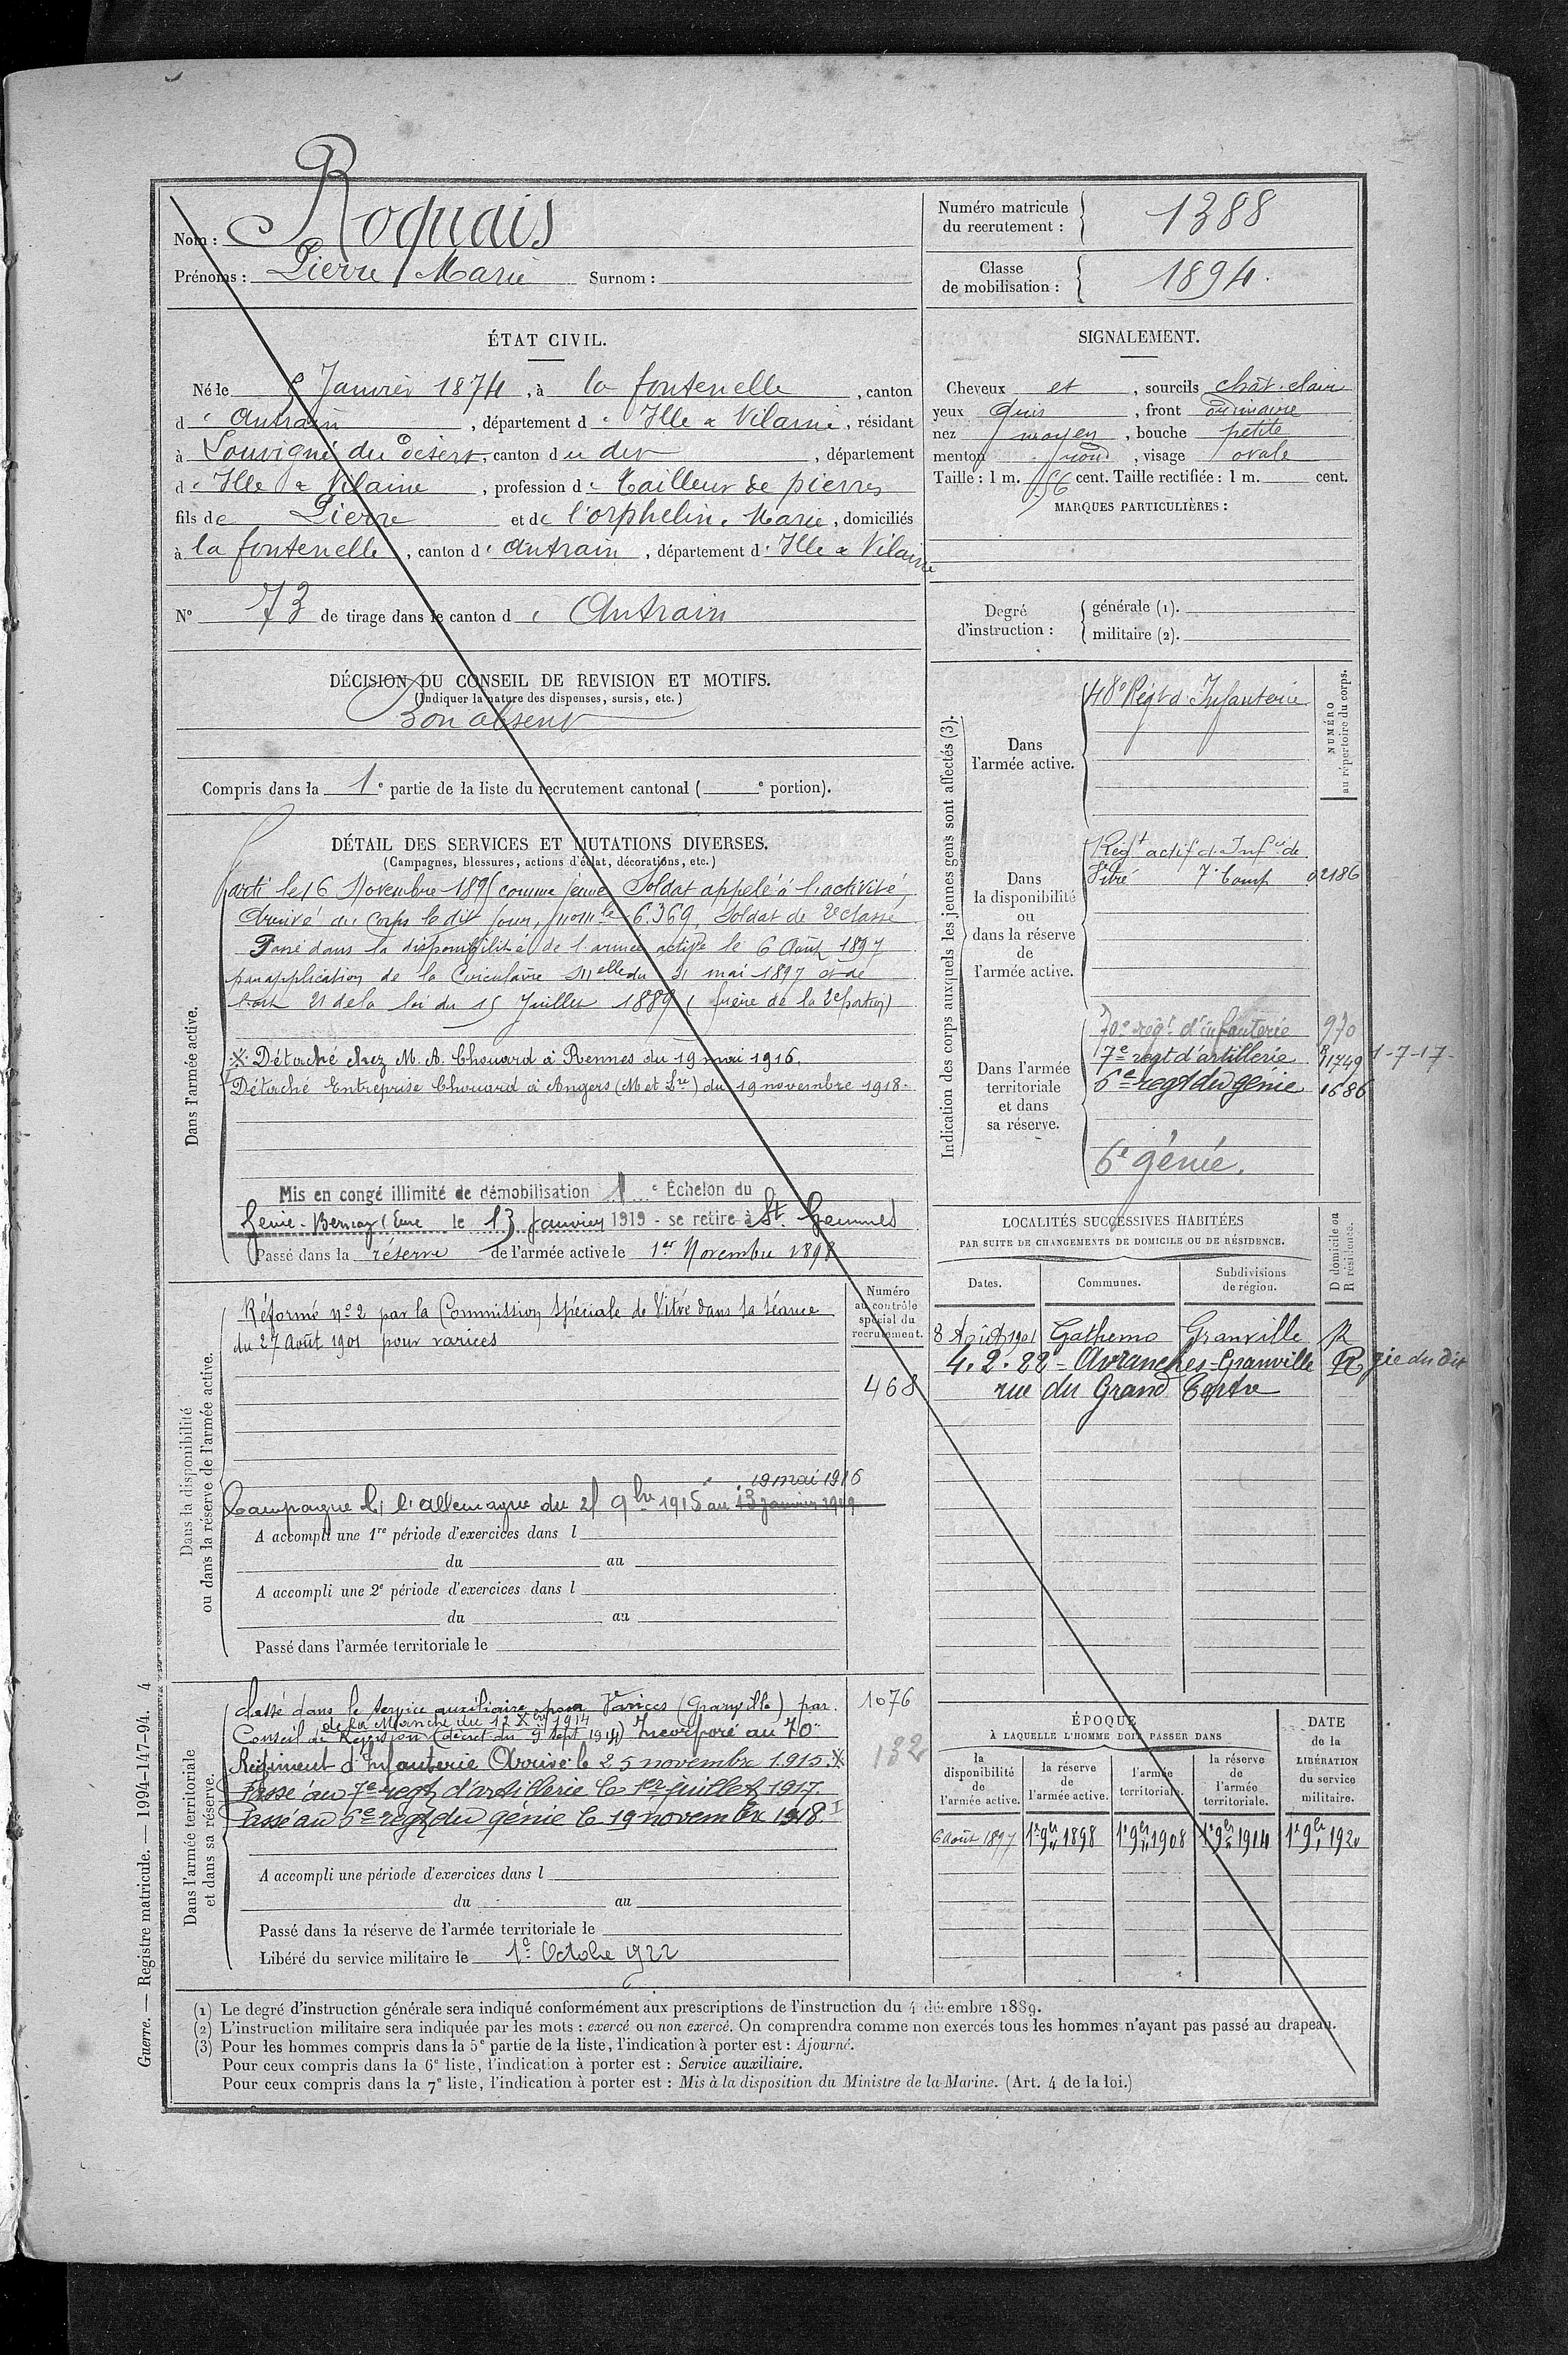 Nom : Roquais
Prénoms : Pierre Marie Surnom :
Numéro matricule du recrutement : 1388
Classe de mobilisation : 1894.
ÉTAT CIVIL.
Né le 5 Janvier 1874, à la fontenelle, canton
d'Antrain, département d'Ille & Vilaine, résidant
à Louvigné du Désert, canton du dit, département
d'Ille & Vilaine, profession de tailleur de pierres
fils de Pierre et de l'orphelin, Marie, domiciliés
à la fontenelle, canton d'Antrain, département d'Ille & Vilaine
N° 73 de tirage dans le canton d'Antrain
SIGNALEMENT.
Cheveux et, sourcils chât. clair
yeux gris, front ordinaire
nez moyen, bouche petite
menton rond, visage ovale
Taille : 1 m. 56 cent. Taille rectifiée : 1 m. cent.
MARQUES PARTICULIÈRES :
Degré d'instruction : générale (1).
militaire (2).
DÉCISION DU CONSEIL DE REVISION ET MOTIFS.
(Indiquer la nature des dispenses, sursis, etc.)
Bon absent
Compris dans la 1e partie de la liste du recrutement cantonal ( e portion).
DÉTAIL DES SERVICES ET MUTATIONS DIVERSES.
(Campagnes, blessures, actions d'éclat, décorations, etc.)
Dans l'armée active.
Parti le 16 Novembre 1895 comme jeune Soldat appelé à l'activité
Arrivé au Corps le dit jour, n° mle 6.369, Soldat de 2e classe
Passé dans la disponibilité de l'armée active le 6 Août 1897
par application de la Circulaire Mlle du 31 mai 1897 et de
l'art 21 de la loi du 15 Juillet 1889 (frère de la 2e portion)
※ Détaché chez M. A. Chouard à Rennes du 19 mai 1916.
Détaché Entreprise Chouard à Angers (M et Lre) du 19 novembre 1918.
Mis en congé illimité de démobilisation 1e Échelon du
Génie - Bernay (Eure le 13 Janvier 1919 - se retire à St. Gemmes
Passé dans la réserve de l'armée active le 1er Novembre 1898
Dans la disponibilité ou dans la réserve de l'armée active.
Réformé n° 2 par la Commission Spéciale de Vitré dans sa séance
du 27 Août 1901 pour varices
Numéro au contrôle spécial du recrutement.
468
19 mai 1916
Campagne c/ l'allemagne du 25 9bre 1915 au 13 janvier 1919
A accompli une 1re période d'exercices dans l
du au
A accompli une 2e période d'exercices dans l
du au
Passé dans l'armée territoriale le
Dans l'armée territoriale et dans sa réserve.
Classé dans le service auxiliaire pour Varices (Granville) par
de la Manche du 12 Xbre 1914
Conseil de Révision (décret du 9 Sept 1914) Incorporé au 70e
Régiment d'Infanterie Arrivé le 25 novembre 1915. ※
Passé au 7e regt d'artillerie le 1er juillet 1917.
Passé au 6e regt du génie le 19 novembre 1918.
1076
132
A accompli une période d'exercices dans l
du au
Passé dans la réserve de l'armée territoriale le
Libéré du service militaire le 1er Octobre 1922
Indication des corps auxquels les jeunes gens sont affectés (3).
NUMÉRO au répertoire du corps.
Dans l'armée active.
48e Régt d'Infanterie
Dans la disponibilité ou dans la réserve de l'armée active.
Régt actif d'Infie de
Vitré 7e Comp 02186
Dans l'armée territoriale et dans sa réserve.
70e régt d'infanterie 970
7e regt d'artillerie 11749 1-7-17-
6e regt du génie 1686
6e génie.
LOCALITÉS SUCCESSIVES HABITÉES
PAR SUITE DE CHANGEMENTS DE DOMICILE OU DE RÉSIDENCE.
Dates. Communes. Subdivisions de région. D domicile ou R résidence.
8 Août 1901 Gathemo Granville R
4.2.22 - Avranches - Granville R gie du dit
rue du Grand Tertre
ÉPOQUE
À LAQUELLE L'HOMME DOIT PASSER DANS
la disponibilité de l'armée active.
la réserve de l'armée active.
l'armée territoriale.
la réserve de l'armée territoriale.
DATE de la LIBÉRATION du service militaire.
6 Août 1897 1er 9bre 1898 1er 9bre 1908 1er 9bre 1914 1er 9bre 1920
(1) Le degré d'instruction générale sera indiqué conformément aux prescriptions de l'instruction du 4 décembre 1889.
(2) L'instruction militaire sera indiquée par les mots : exercé ou non exercé. On comprendra comme non exercés tous les hommes n'ayant pas passé au drapeau.
(3) Pour les hommes compris dans la 5e partie de la liste, l'indication à porter est : Ajourné.
Pour ceux compris dans la 6e liste, l'indication à porter est : Service auxiliaire.
Pour ceux compris dans la 7e liste, l'indication à porter est : Mis à la disposition du Ministre de la Marine. (Art. 4 de la loi.)
Guerre. — Registre matricule. — 1994-147-94. 4